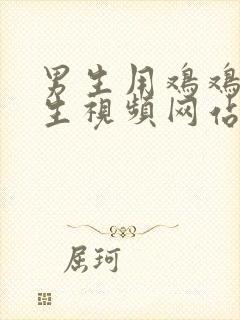 男生用鸡鸡
生视频网站
屈珂